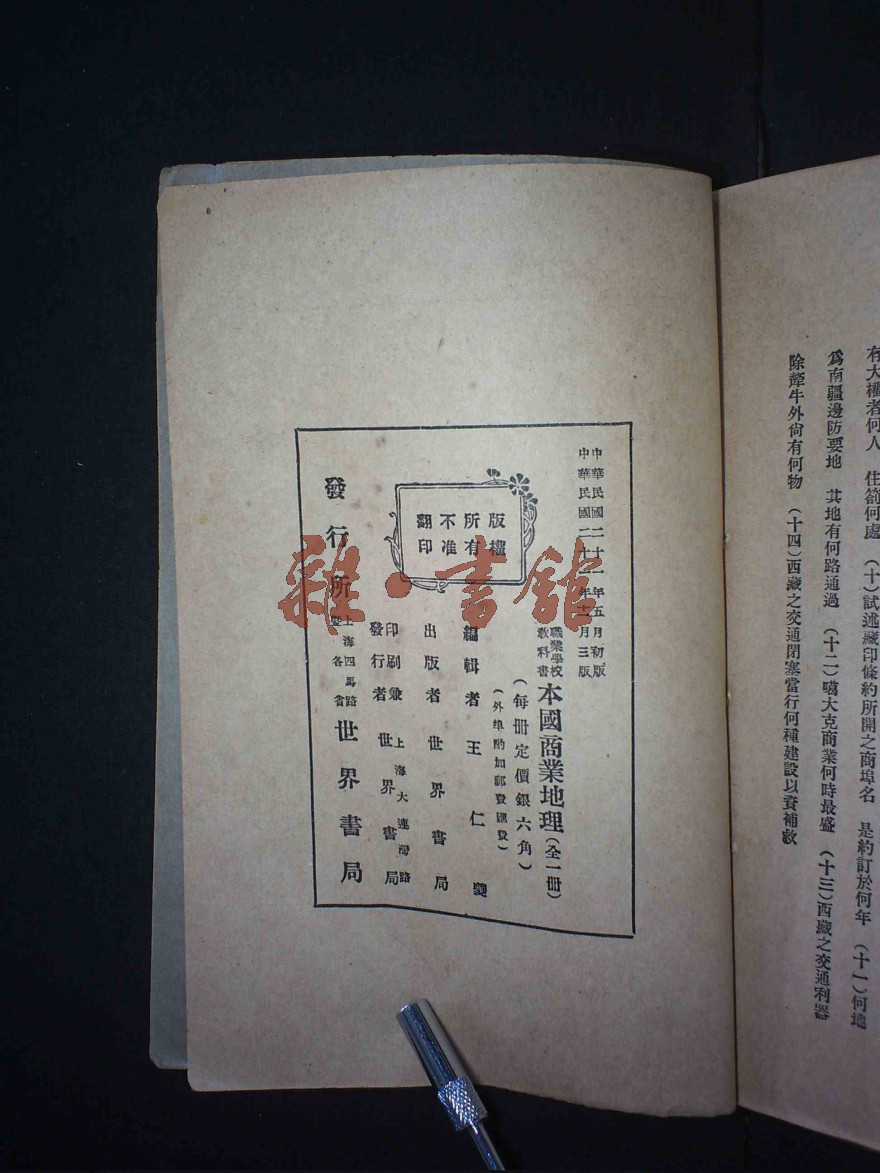 有大權者何人　住箚何處　(十)試述藏印條約所開之商埠名　是約訂於何年　(十一)何地
爲南疆邊防要地　其地有何路通過　(十二)噶大克商業何時最盛　(十三)西藏之交通利器
除犛牛外尙有何物　(十四)西藏之交通閉塞當行何種建設以資補救
中華民國二十一年五月初版
中華民國二十二年十一月三版
職業學校
敎科書
本國商業地理(全一冊)
(每冊定價銀六角)
(外埠酌加郵費匯費)
版權
所有
不准
翻印
編輯者 王仁夔
出版者 世界書局
印刷兼
發行者
上海大連灣路
世界書局
發行所
上海四馬路
暨各省
世界書局
雜·書館